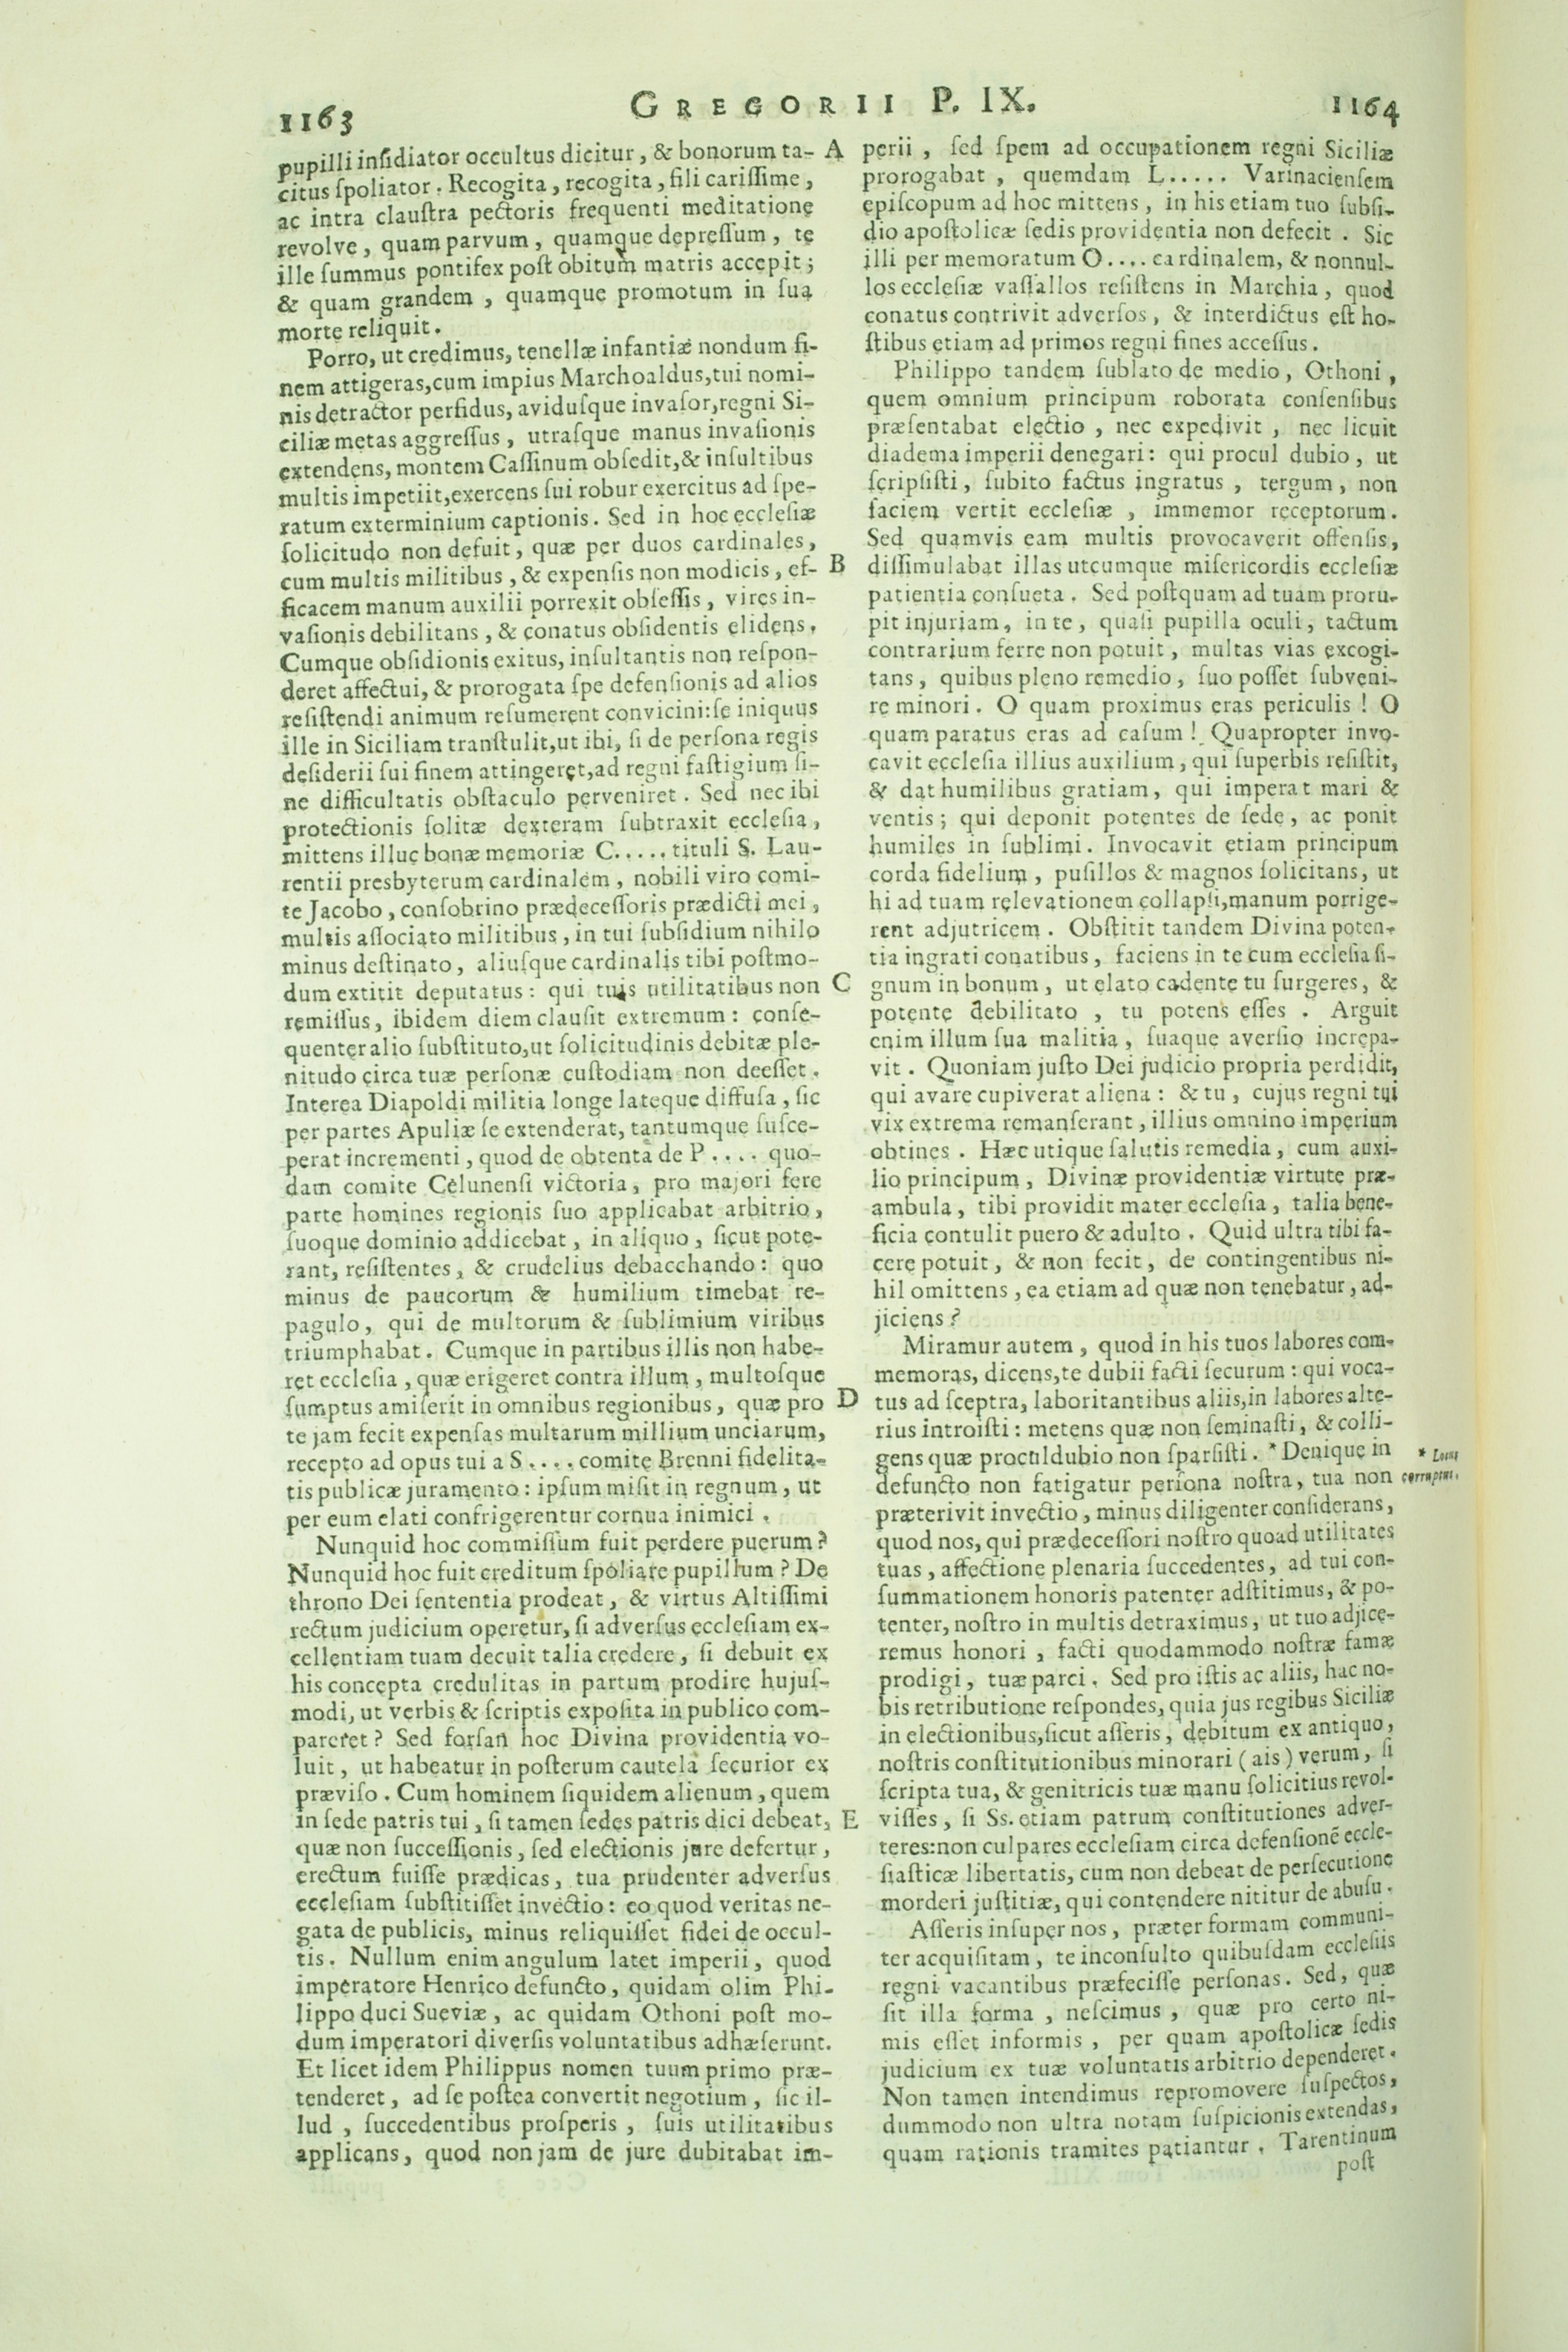 1163
GREGORII P. IX.
1164
pupilli inſidiator occultus dicitur, & bonorum ta-
citus ſpoliator. Recogita, recogita, fili cariſſime,
ac intra clauſtra pectoris frequenti meditatione
revolve, quam parvum, quamque depreſſum, te
ille ſummus pontifex poſt obitum matris accepit;
& quam grandem, quamque promotum in ſua
morte reliquit.
Porro, ut credimus, tenellæ infantiæ nondum fi-
nem attigeras, cum impius Marchoaldus, tui nomi-
nis detractor perfidus, aviduſque invaſor, regni Si-
ciliæ metas aggreſſus, utraſque manus invaſionis
extendens, montem Caſſinum obſedit, & inſultibus
multis impetiit, exercens ſui robur exercitus ad ſpe-
ratum exterminium captionis. Sed in hoc eccleſiæ
ſolicitudo non defuit, quæ per duos cardinales,
cum multis militibus, & expenſis non modicis, ef-
ficacem manum auxilii porrexit obſeſſis, vires in-
vaſionis debilitans, & conatus obſidentis elidens.
Cumque obſidionis exitus, inſultantis non reſpon-
deret affectui, & prorogata ſpe defenſionis ad alios
reſiſtendi animum reſumerent convicini: ſe iniquus
ille in Siciliam tranſtulit, ut ibi, ſi de perſona regis
deſiderii ſui finem attingeret, ad regni faſtigium ſi-
ne difficultatis obſtaculo perveniret. Sed nec ibi
protectionis ſolitæ dexteram ſubtraxit eccleſia,
mittens illuc bonæ memoriæ C..... tituli S. Lau-
rentii presbyterum cardinalem, nobili viro comi-
te Jacobo, conſobrino prædeceſſoris prædicti mei,
multis aſſociato militibus, in tui ſubſidium nihilo
minus deſtinato, aliuſque cardinalis tibi poſtmo-
dum extitit deputatus: qui tuis utilitatibus non
remiſſus, ibidem diem clauſit extremum: conſe-
quenter alio ſubſtituto, ut ſolicitudinis debitæ ple-
nitudo circa tuæ perſonæ cuſtodiam non deeſſet.
Interea Diapoldi militia longe lateque diffuſa, ſic
per partes Apuliæ ſe extenderat, tantumque ſuſce-
perat incrementi, quod de obtenta de P.... quo-
dam comite Celunenſi victoria, pro majori fere
parte homines regionis ſuo applicabat arbitrio,
ſuoque dominio addicebat, in aliquo, ſicut pote-
rant, reſiſtentes, & crudelius debacchando: quo
minus de paucorum & humilium timebat re-
pagulo, qui de multorum & ſublimium viribus
triumphabat. Cumque in partibus illis non habe-
ret eccleſia, quæ erigeret contra illum, multoſque
ſumptus amiſerit in omnibus regionibus, quæ pro
te jam fecit expenſas multarum millium unciarum,
recepto ad opus tui a S.... comite Brenni fidelita-
tis publicæ juramento: ipſum miſit in regnum, ut
per eum elati confrigerentur cornua inimici.
Nunquid hoc commiſſum fuit perdere puerum?
Nunquid hoc fuit creditum ſpoliare pupillum? De
throno Dei ſententia prodeat, & virtus Altiſſimi
rectum judicium operetur, ſi adverſus eccleſiam ex-
cellentiam tuam decuit talia credere, ſi debuit ex
his concepta credulitas in partum prodire hujuſ-
modi, ut verbis & ſcriptis expoſita in publico com-
pareret? Sed forſan hoc Divina providentia vo-
luit, ut habeatur in poſterum cautela ſecurior ex
præviſo. Cum hominem ſiquidem alienum, quem
in ſede patris tui, ſi tamen ſedes patris dici debeat,
quæ non ſucceſſionis, ſed electionis jure defertur,
erectum fuiſſe prædicas, tua prudenter adverſus
eccleſiam ſubſtitiſſet invectio: eo quod veritas ne-
gata de publicis, minus reliquiſſet fidei de occul-
tis. Nullum enim angulum latet imperii, quod
imperatore Henrico defuncto, quidam olim Phi-
lippo duci Sueviæ, ac quidam Othoni poſt mo-
dum imperatori diverſis voluntatibus adhæſerunt.
Et licet idem Philippus nomen tuum primo præ-
tenderet, ad ſe poſtea convertit negotium, ſic il-
lud, ſuccedentibus proſperis, ſuis utilitatibus
applicans, quod non jam de jure dubitabat im-
A
B
C
D
E
perii, ſed ſpem ad occupationem regni Siciliæ
prorogabat, quemdam L..... Varinacienſem
epiſcopum ad hoc mittens, in his etiam tuo ſubſi-
dio apoſtolicæ ſedis providentia non defecit. Sic
illi per memoratum O.... cardinalem, & nonnul-
los eccleſiæ vaſſallos reſiſtens in Marchia, quod
conatus contrivit adverſos, & interdictus eſt ho-
ſtibus etiam ad primos regni fines acceſſus.
Philippo tandem ſublato de medio, Othoni,
quem omnium principum roborata conſenſibus
præſentabat electio, nec expedivit, nec licuit
diadema imperii denegari: qui procul dubio, ut
ſcripſiſti, ſubito factus ingratus, tergum, non
faciem vertit eccleſiæ, immemor receptorum.
Sed quamvis eam multis provocaverit offenſis,
diſſimulabat illas utcumque miſericordis eccleſiæ
patientia conſueta. Sed poſtquam ad tuam proru-
pit injuriam, in te, quaſi pupilla oculi, tactum
contrarium ferre non potuit, multas vias excogi-
tans, quibus pleno remedio, ſuo poſſet ſubveni-
re minori. O quam proximus eras periculis! O
quam paratus eras ad caſum! Quapropter invo-
cavit eccleſia illius auxilium, qui ſuperbis reſiſtit,
& dat humilibus gratiam, qui imperat mari &
ventis; qui deponit potentes de ſede, ac ponit
humiles in ſublimi. Invocavit etiam principum
corda fidelium, puſillos & magnos ſolicitans, ut
hi ad tuam relevationem collapſi, manum porrige-
rent adjutricem. Obſtitit tandem Divina poten-
tia ingrati conatibus, faciens in te cum eccleſia ſi-
gnum in bonum, ut elato cadente tu ſurgeres, &
potente debilitato, tu potens eſſes. Arguit
enim illum ſua malitia, ſuaque averſio increpa-
vit. Quoniam juſto Dei judicio propria perdidit,
qui avare cupiverat aliena: & tu, cujus regni tui
vix extrema remanſerant, illius omnino imperium
obtines. Hæc utique ſalutis remedia, cum auxi-
lio principum, Divinæ providentiæ virtute præ-
ambula, tibi providit mater eccleſia, talia bene-
ficia contulit puero & adulto. Quid ultra tibi fa-
cere potuit, & non fecit, de contingentibus ni-
hil omittens, ea etiam ad quæ non tenebatur, ad-
jiciens?
Miramur autem, quod in his tuos labores com-
memoras, dicens, te dubii facti ſecurum: qui voca-
tus ad ſceptra, laboritantibus aliis, in labores alte-
rius introiſti: metens quæ non ſeminaſti, & colli-
gens quæ proculdubio non ſparſiſti. * Denique in
defuncto non fatigatur perſona noſtra, tua non
præterivit invectio, minus diligenter conſiderans,
quod nos, qui prædeceſſori noſtro quoad utilitates
tuas, affectione plenaria ſuccedentes, ad tui con-
ſummationem honoris patenter adſtitimus, & po-
tenter, noſtro in multis detraximus, ut tuo adjice-
remus honori, facti quodammodo noſtræ famæ
prodigi, tuæ parci. Sed pro iſtis ac aliis, hac no-
bis retributione reſpondes, quia jus regibus Siciliæ
in electionibus, ſicut aſſeris, debitum ex antiquo,
noſtris conſtitutionibus minorari (ais) verum, ſi
ſcripta tua, & genitricis tuæ manu ſolicitius revol-
viſſes, ſi Ss. etiam patrum conſtitutiones adver-
teres: non culpares eccleſiam circa defenſionē eccle-
ſiaſticæ libertatis, cum non debeat de perſecutione
morderi juſtitiæ, qui contendere nititur de abuſu.
Aſſeris inſuper nos, præter formam communi-
ter acquiſitam, te inconſulto quibuſdam eccleſiis
regni vacantibus præfeciſſe perſonas. Sed, quæ
ſit illa forma, neſcimus, quæ pro certo ni-
mis eſſet informis, per quam apoſtolicæ ſedis
judicium ex tuæ voluntatis arbitrio dependeret.
Non tamen intendimus repromovere ſuſpectos,
dummodo non ultra notam ſuſpicionis extendas,
quam rationis tramites patiantur. Tarentinum
poſt
* Locus
corruptus.